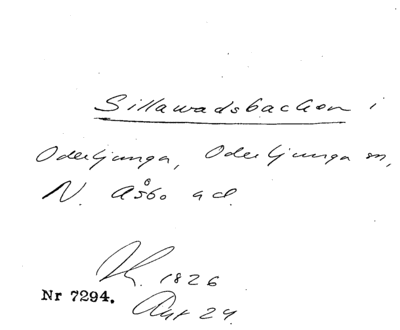 Sillawadsbacken i
Oderljunga, Oderljunga sn,
N. Åsbo hd.
1826
Nr 7294.
Akt 24